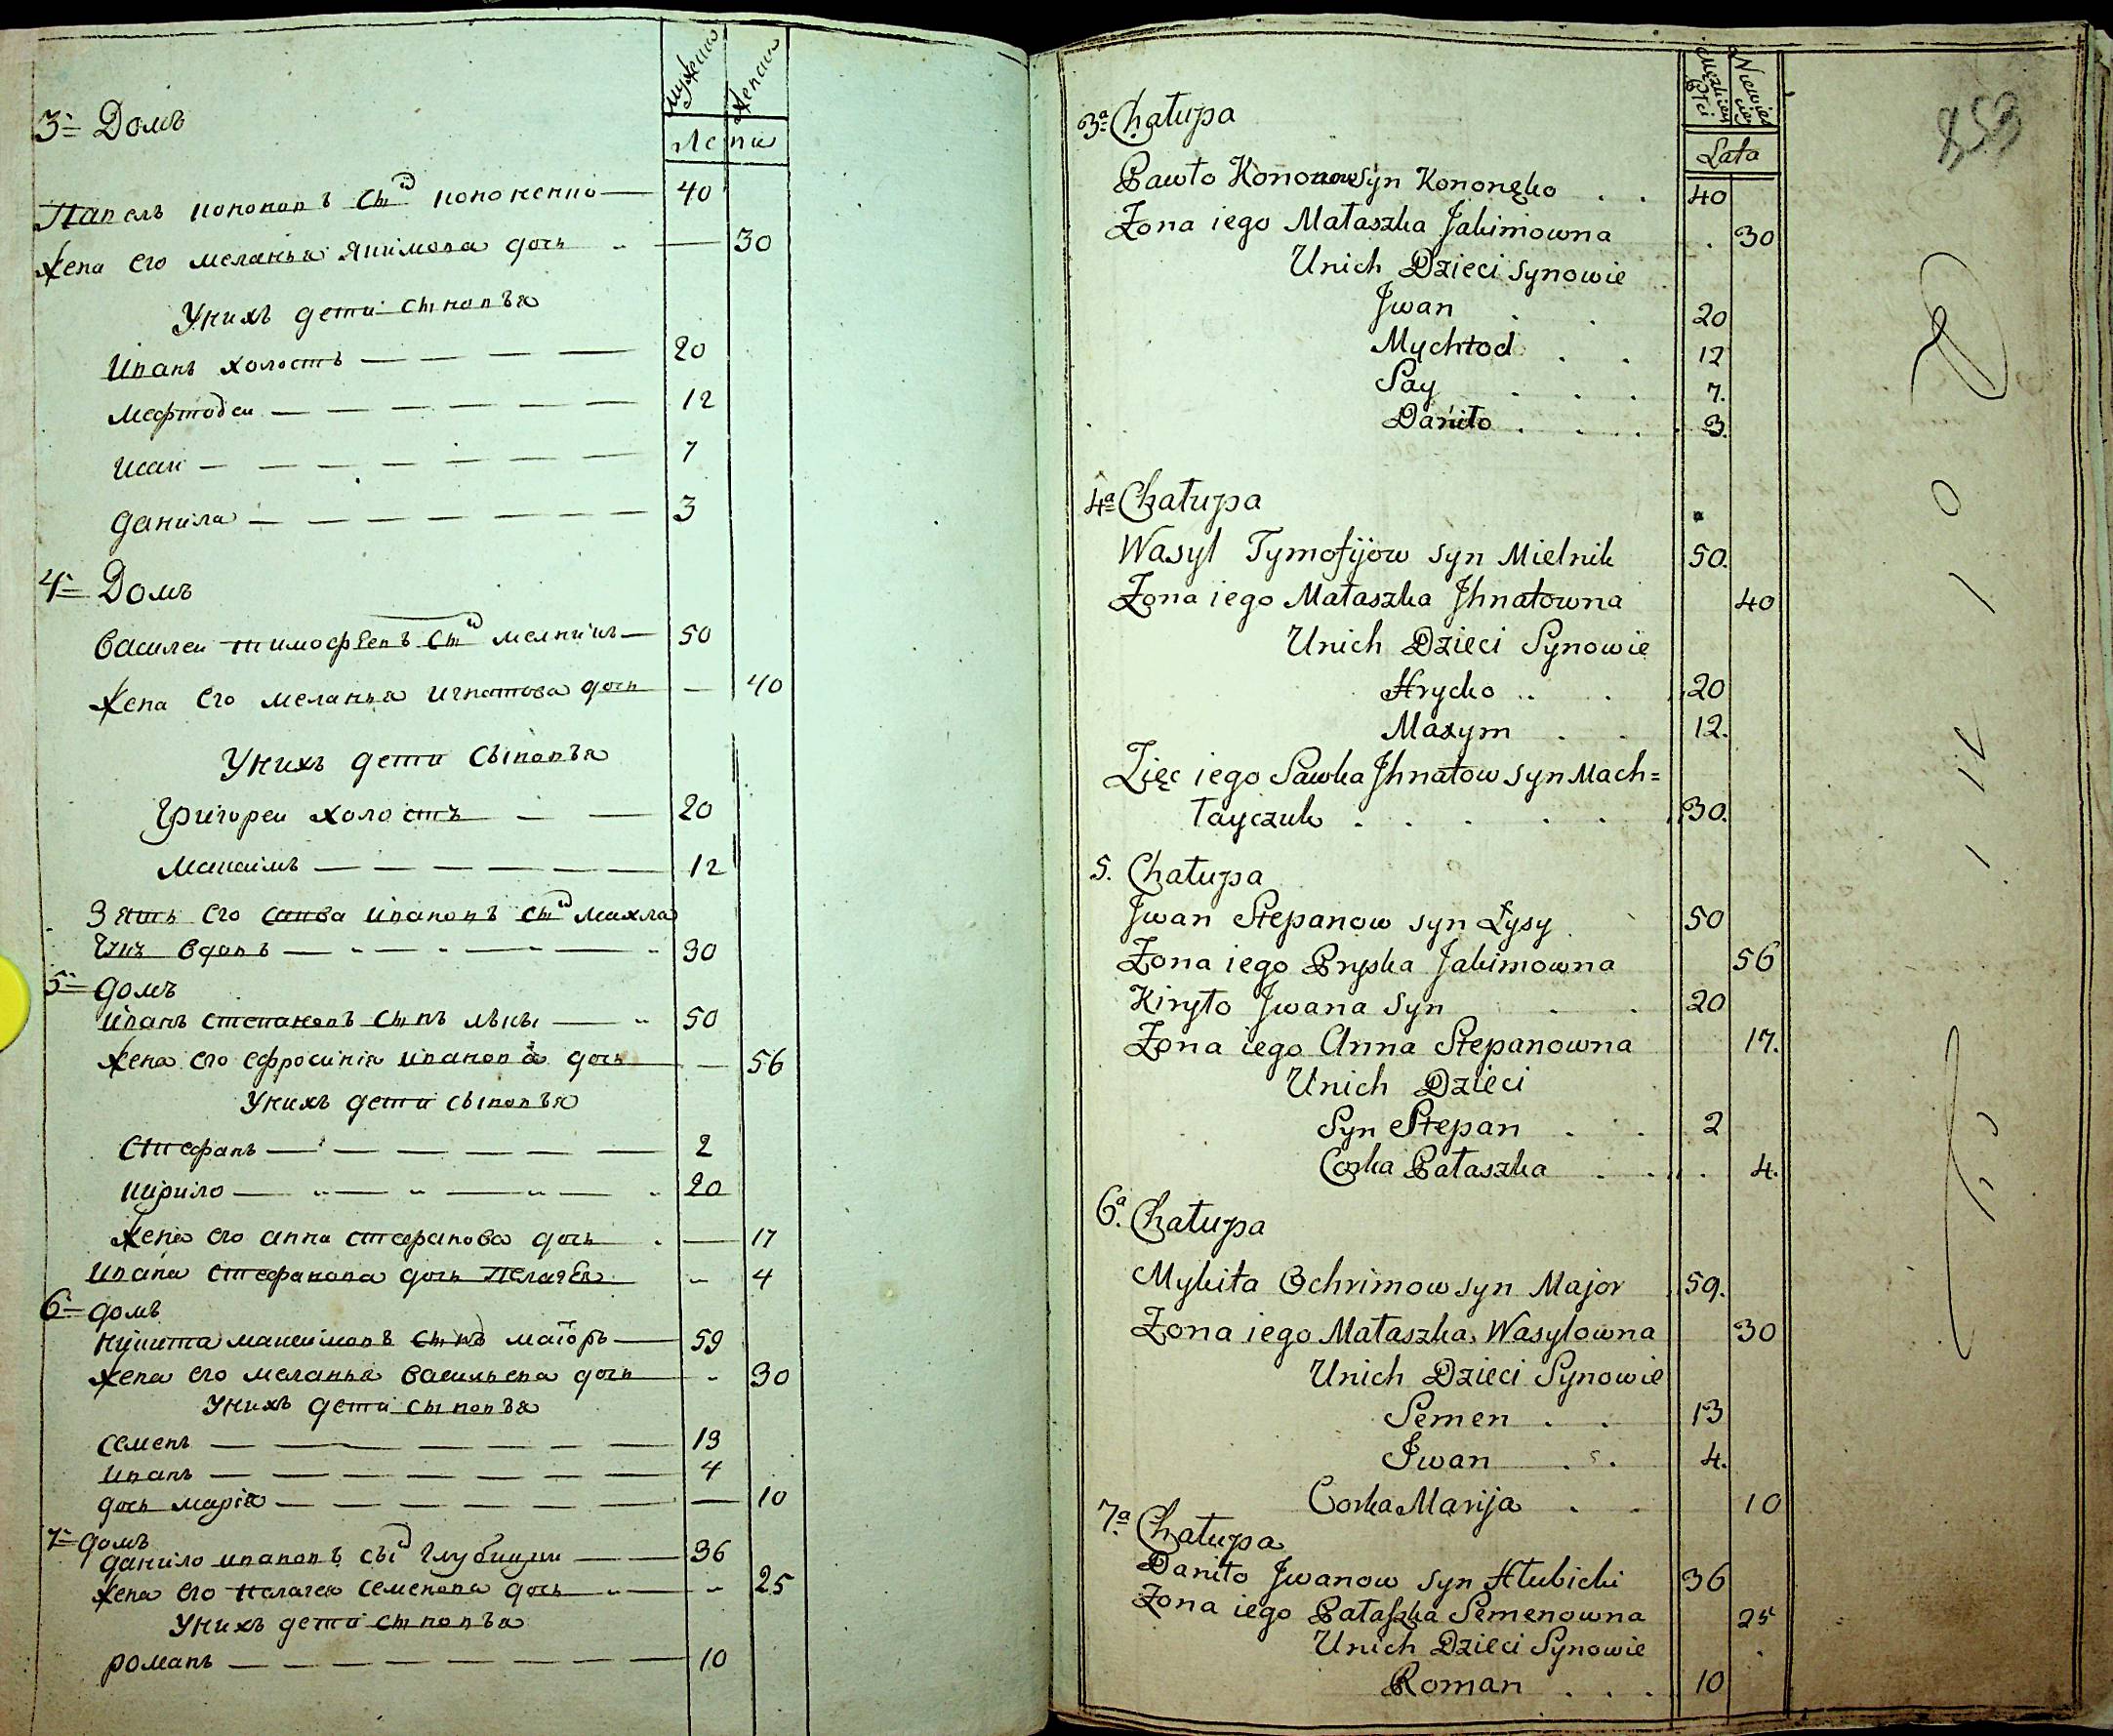 мужеска
женска
лета
3. Домъ
Павелъ кононовъ сынъ кононенко 40
жена его меланья якимова дочь 30
Унихъ дети сыновья
Иванъ холостъ 20
мефтодеи 12
исаи 7
данила 3
4. Домъ
василеи тимофеевъ сынъ мелникъ 50
жена его меланья игнатова дочь 40
Унихъ дети сыновья
Григореи холостъ 20
максимъ 12
Зять его савва ивановъ сынъ михла
чикъ вдовъ 30
5. домъ
иванъ степановъ сынъ лысы 50
жена его ефросиния иванова дочь 56
Унихъ дети сыновья
Стефанъ 2
кирило 20
жена его анна стефанова дочь 17
ивана стефанова дочь Пелагея 4
6. домъ
никита максимовъ сынъ маіоръ 59
жена его меланья васильева дочь 30
Унихъ дети сыновья
семенъ 13
иванъ 4
дочь марія 10
7. домъ
данило ивановъ сынъ глубицки 36
жена его пелагея семенова дочь 25
Унихъ дети сыновья
романъ 10
853
Męzkiey Płci
Lata
3a Chałupa
Pawło Kononow Syn Kononęko 40
Żona iego Małaszka Jakimowna 30
Unich Dzieci Synowie
Jwan 20
Mychtod 12
Say 7.
Daniło 3.
4a Chałupa
Wasyl Tymofijow syn Mielnik 50.
Żona iego Małaszka Jhnatowna 40
Unich Dzieci Synowie
Hrycko 20
Maxym 12.
Zięc iego Sawka Jhnatow syn Mach=
łayczuk 30.
5. Chałupa
Jwan Stepanow syn Łysy 50
Żona iego Pryska Jakimowna 56
Kiryło Jwana Syn 20
Żona iego Anna Stepanowna 17.
Unich Dzieci
Syn Stepan 2
Corka Pałaszka 4.
6a. Chałupa
Mykita Ochrimow syn Major 59.
Żona iego Małaszka Wasylowna 30
Unich Dzieci Synowie
Semen 13
Jwan 4.
Corka Marija 10
7a. Chałupa
Daniło Jwanow syn Hłubicki 36
Żona iego Pałaszka Semenowna 25
Unich Dzieci Synowie
Roman 10